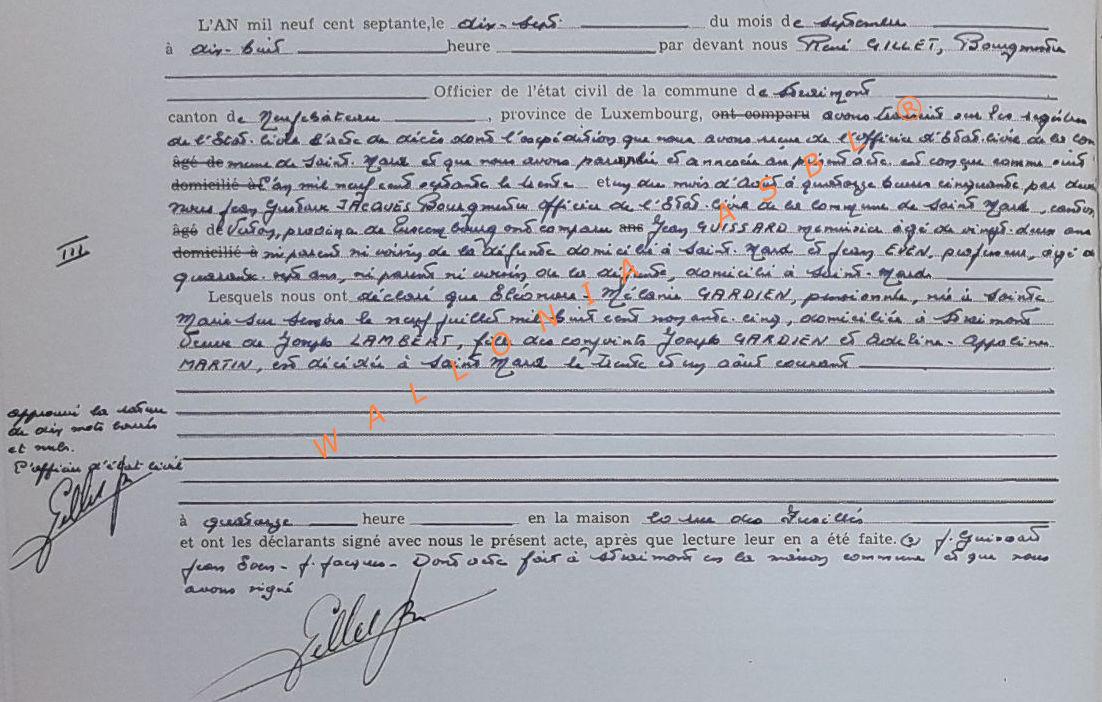 L'AN mil neuf cent septante, le dix-sept du mois de septembre
à dix-huit heure par devant nous René GILLET, Bourgmestre
Officier de l'état civil de la commune de Straimont
canton de Neufchâteau, province de Luxembourg, ont comparu avons transcrit sur les registres
de l'Etat-Civil l'acte de décès dont l'expédition que nous avons reçue de l'officier d'Etat-Civil de la com
âgé de mune de Saint-Mard et que nous avons paraphée et annexée au présent acte est conçue comme suit
domicilié à L'an mil neuf cent septante le trente et un du mois d'Août à quatorze heures cinquante par devant
nous Jean Gustave JACQUES Bourgmestre officier de l'Etat-Civil de la commune de Saint-Mard, canton
âgé de Virton, province de Luxembourg ont comparu ans Jean GUISSARD menuisier âgé de vingt-deux ans
domicilié à ni parent ni voisin de la défunte domicilié à Saint-Mard et Jean EVEN, professeur, âgé de
quarante-sept ans, ni parent ni voisin de la défunte, domicilié à Saint-Mard
III
Lesquels nous ont déclaré que Eléonore-Mélanie GARDIEN, pensionnée, née à Sainte
Marie sur Semois le neuf juillet mil huit cent nonante-cinq, domiciliée à Straimont
Veuve de Joseph LAMBERT, fille des conjoints Joseph GARDIEN et Adeline-Appoline
MARTIN, est décédée à Saint Mard le trente et un août courant
approuvé la rature
de dix mots barrés
et nuls.
L'officier d'état civil
Gillet R
à quatorze heure en la maison la rue des Fusillés
et ont les déclarants signé avec nous le présent acte, après que lecture leur en a été faite. (s) J. Guissard
Jean Even - J. Jacques - Dont acte fait à Straimont en la maison commune et que nous
avons signé
Gillet R
WALLONIA ASBL ®